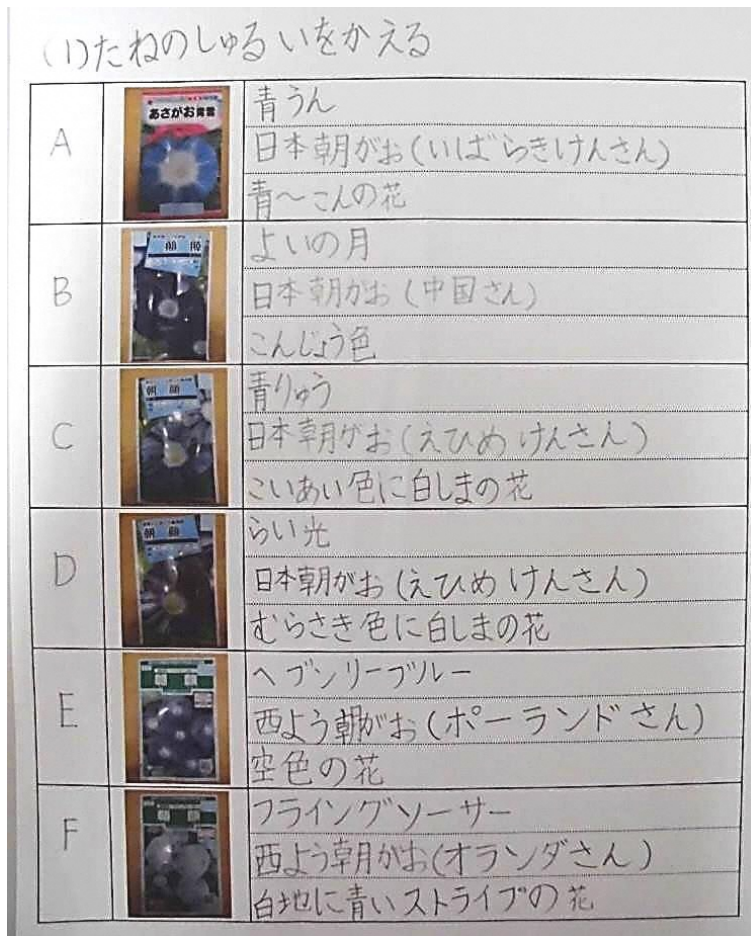 (1)たねのしゅるいをかえる
A
あさがお青雲
青うん
日本朝がお(いばらきけんさん)
青〜こんの花
B
朝顔
よいの月
日本朝がお(中国さん)
こんじょう色
C
朝顔
青りゅう
日本朝がお(えひめけんさん)
こいあい色に白しまの花
D
朝顔
らい光
日本朝がお(えひめけんさん)
むらさき色に白しまの花
E
ヘブンリーブルー
西よう朝がお(ポーランドさん)
空色の花
F
フライングソーサー
西よう朝がお(オランダさん)
白地に青いストライプの花